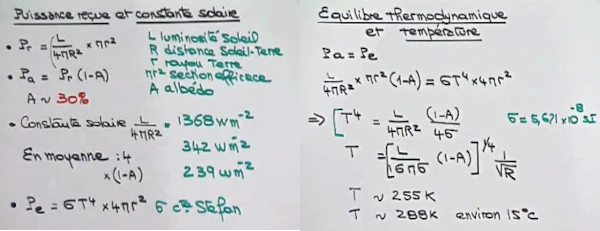 Puissance reçue et constante solaire
• Pr = (L/4πR² × πr²
L luminosité Soleil
R distance Soleil-Terre
r rayon Terre
πr² section efficace
A albédo
• Pa = Pr (1-A)
A ~ 30%
• Constante solaire L/4πR² = 1368 wm⁻²
En moyenne : 4 342 wm⁻²
×(1-A) 239 wm⁻²
• Pe = σT⁴ × 4πr² σ cᵗᵉ Stéfan
Equilibre thermodynamique
et température
Pa = Pe
L/4πR² × πr² (1-A) = σT⁴ × 4πr²
⇒ [T⁴ = L/4πR² (1-A)/4σ σ = 5,671 × 10⁻⁸ SI
T = [L/16πσ (1-A)]^1/4 1/√R
T ~ 255 K
T ~ 288K environ 15°c